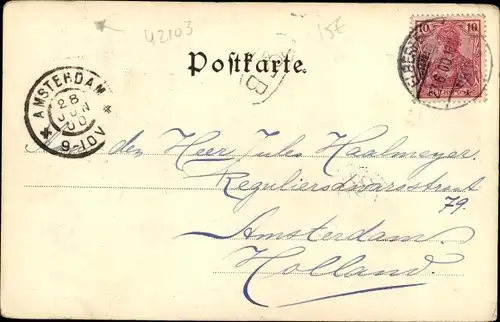 42103
15€
10 10
Postkarte.
REICHSPOST
AMSTERDAM
28
JUN
00
9-10V
B
den Heer Jules Haalmeyer.
Reguliersdwarsstraat
79.
Amsterdam.
Holland.